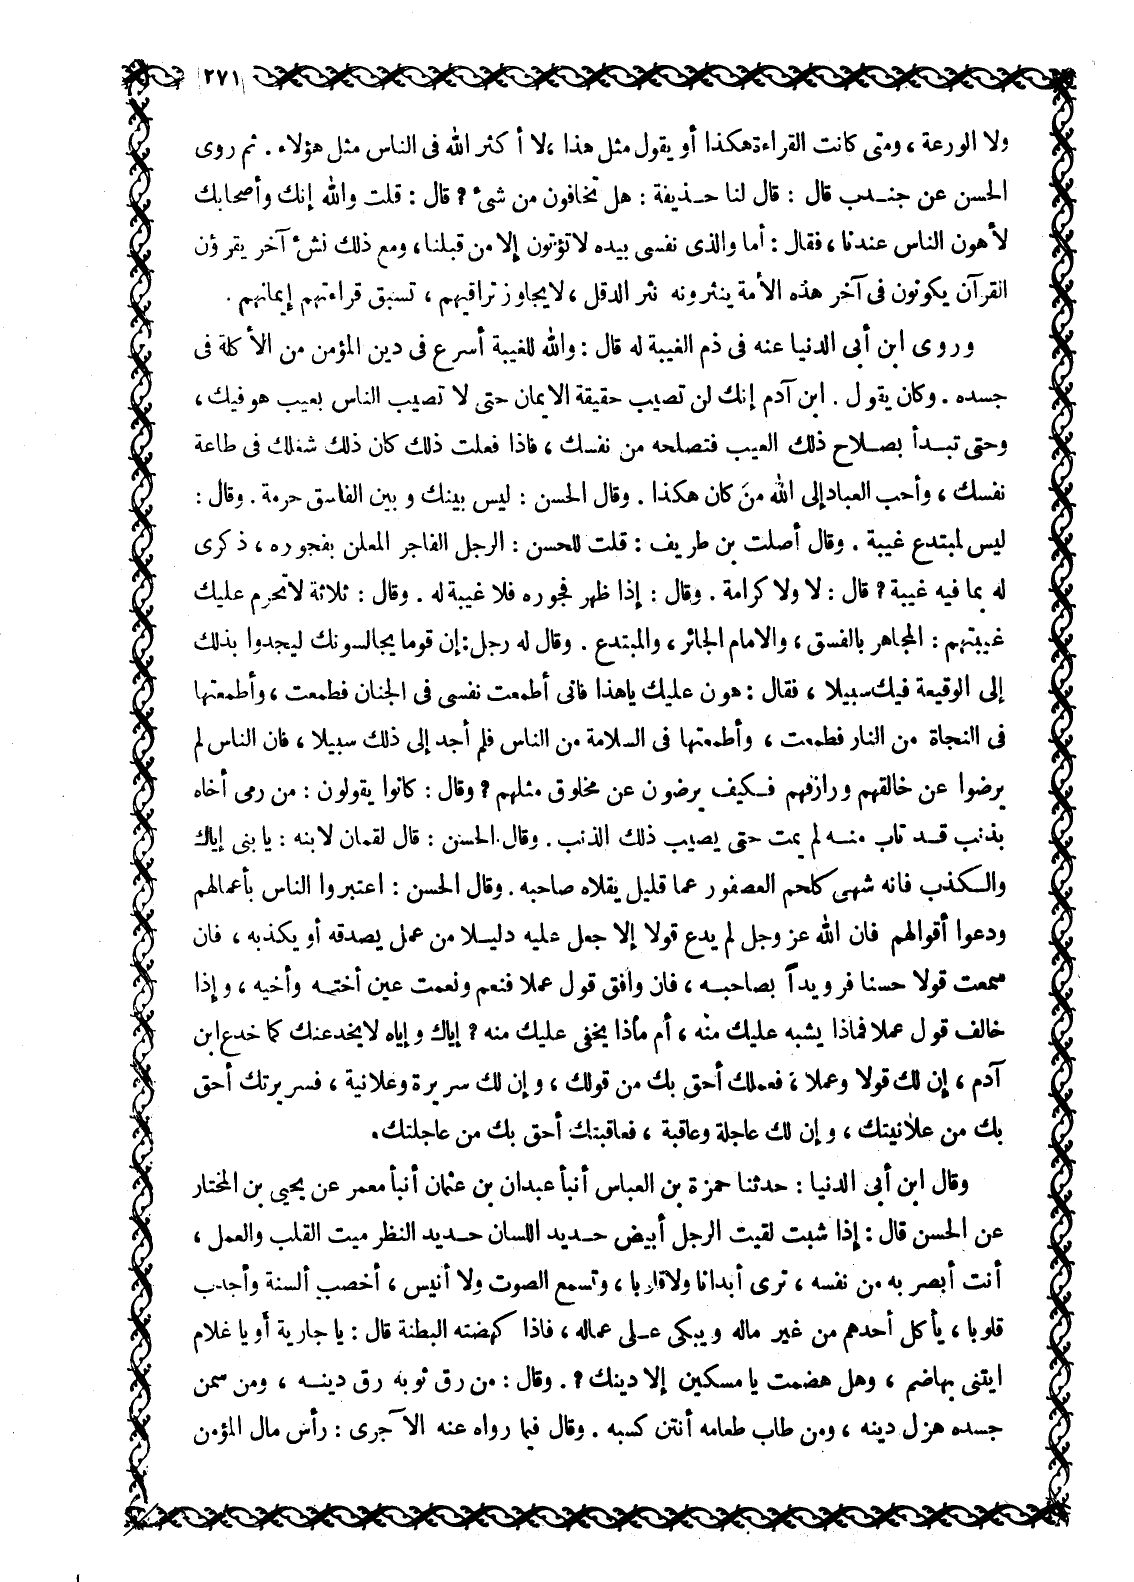 ٢٧١
ولا الورعة ، ومتى كانت القراءة هكذا أو يقول مثل هذا ، لا أكثر الله فى الناس مثل هؤلاء . ثم روى
الحسن عن جندب قال : قال لنا حذيفة : هل تخافون من شئ ؟ قال : قلت والله إنك وأصحابك
لأهون الناس عندنا ، فقال : أما والذى نفسى بيده لا تؤتون إلا من قبلنا ، ومع ذلك نشء آخر يقرؤن
القرآن يكونون فى آخر هذه الأمة ينثرونه نثر الدقل ، لا يجاوز تراقيهم ، تسبق قراءتهم إيمانهم .
وروى ابن أبى الدنيا عنه فى ذم الغيبة له قال : والله للغيبة أسرع فى دين المؤمن من الأكلة فى
جسده . وكان يقول . ابن آدم إنك لن تصيب حقيقة الايمان حتى لا تصيب الناس بعيب هو فيك ،
وحتى تبدأ بصلاح ذلك العيب فتصلحه من نفسك ، فاذا فعلت ذلك كان ذلك شغلك فى طاعة
نفسك ، وأحب العباد إلى الله من كان هكذا . وقال الحسن : ليس بينك وبين الفاسق حرمة . وقال :
ليس لمبتدع غيبة . وقال أصلت بن طريف : قلت للحسن : الرجل الفاجر المعلن بفجوره ، ذكرى
له بما فيه غيبة ؟ قال : لا ولا كرامة . وقال : إذا ظهر فجوره فلا غيبة له . وقال : ثلاثة لا تحرم عليك
غيبتهم : المجاهر بالفسق ، والامام الجائر ، والمبتدع . وقال له رجل : إن قوما يجالسونك ليجدوا بذلك
إلى الوقيعة فيك سبيلا ، فقال : هون عليك يا هذا فانى أطمعت نفسى فى الجنان فطمعت ، وأطمعتها
فى النجاة من النار فطمعت ، وأطمعتها فى السلامة من الناس فلم أجد إلى ذلك سبيلا ، فان الناس لم
يرضوا عن خالقهم ورازقهم فكيف يرضون عن مخلوق مثلهم ؟ وقال : كانوا يقولون : من رمى أخاه
بذنب قد تاب منه لم يمت حتى يصيب ذلك الذنب . وقال الحسن : قال لقمان لابنه : يا بنى إياك
والكذب فانه شهى كلحم العصفور عما قليل يقلاه صاحبه . وقال الحسن : اعتبروا الناس بأعمالهم
ودعوا أقوالهم فان الله عز وجل لم يدع قولا إلا جعل عليه دليلا من عمل يصدقه أو يكذبه ، فان
سمعت قولا حسنا فرويداً بصاحبه ، فان وافق قول عملا فنعم ونعمت عين أخته وأخيه ، وإذا
خالف قول عملا فماذا يشبه عليك منه ، أم ماذا يخفى عليك منه ؟ إياك وإياه لا يخدعنك كما خدع ابن
آدم ، إن لك قولا وعملا ، فعملك أحق بك من قولك ، وإن لك سريرة وعلانية ، فسريرتك أحق
بك من علانيتك ، وإن لك عاجلة وعاقبة ، فعاقبتك أحق بك من عاجلتك .
وقال ابن أبى الدنيا : حدثنا حمزة بن العباس أنبأ عبدان بن عثمان أنبأ معمر عن يحيى بن المختار
عن الحسن قال : إذا شبت لقيت الرجل أبيض حديد اللسان حديد النظر ميت القلب والعمل ،
أنت أبصر به من نفسه ، ترى أبدانا ولا قلوبا ، وتسمع الصوت ولا أنيس ، أخصب ألسنة وأجدب
قلوبا ، يأكل أحدهم من غير ماله ويبكى على عماله ، فاذا كهضته البطنة قال : يا جارية أو يا غلام
ايتنى بهاضم ، وهل هضمت يا مسكين إلا دينك ؟ . وقال : من رق ثوبه رق دينه ، ومن سمن
جسده هزل دينه ، ومن طاب طعامه أنتن كسبه . وقال فيما رواه عنه الآجرى : رأس مال المؤمن